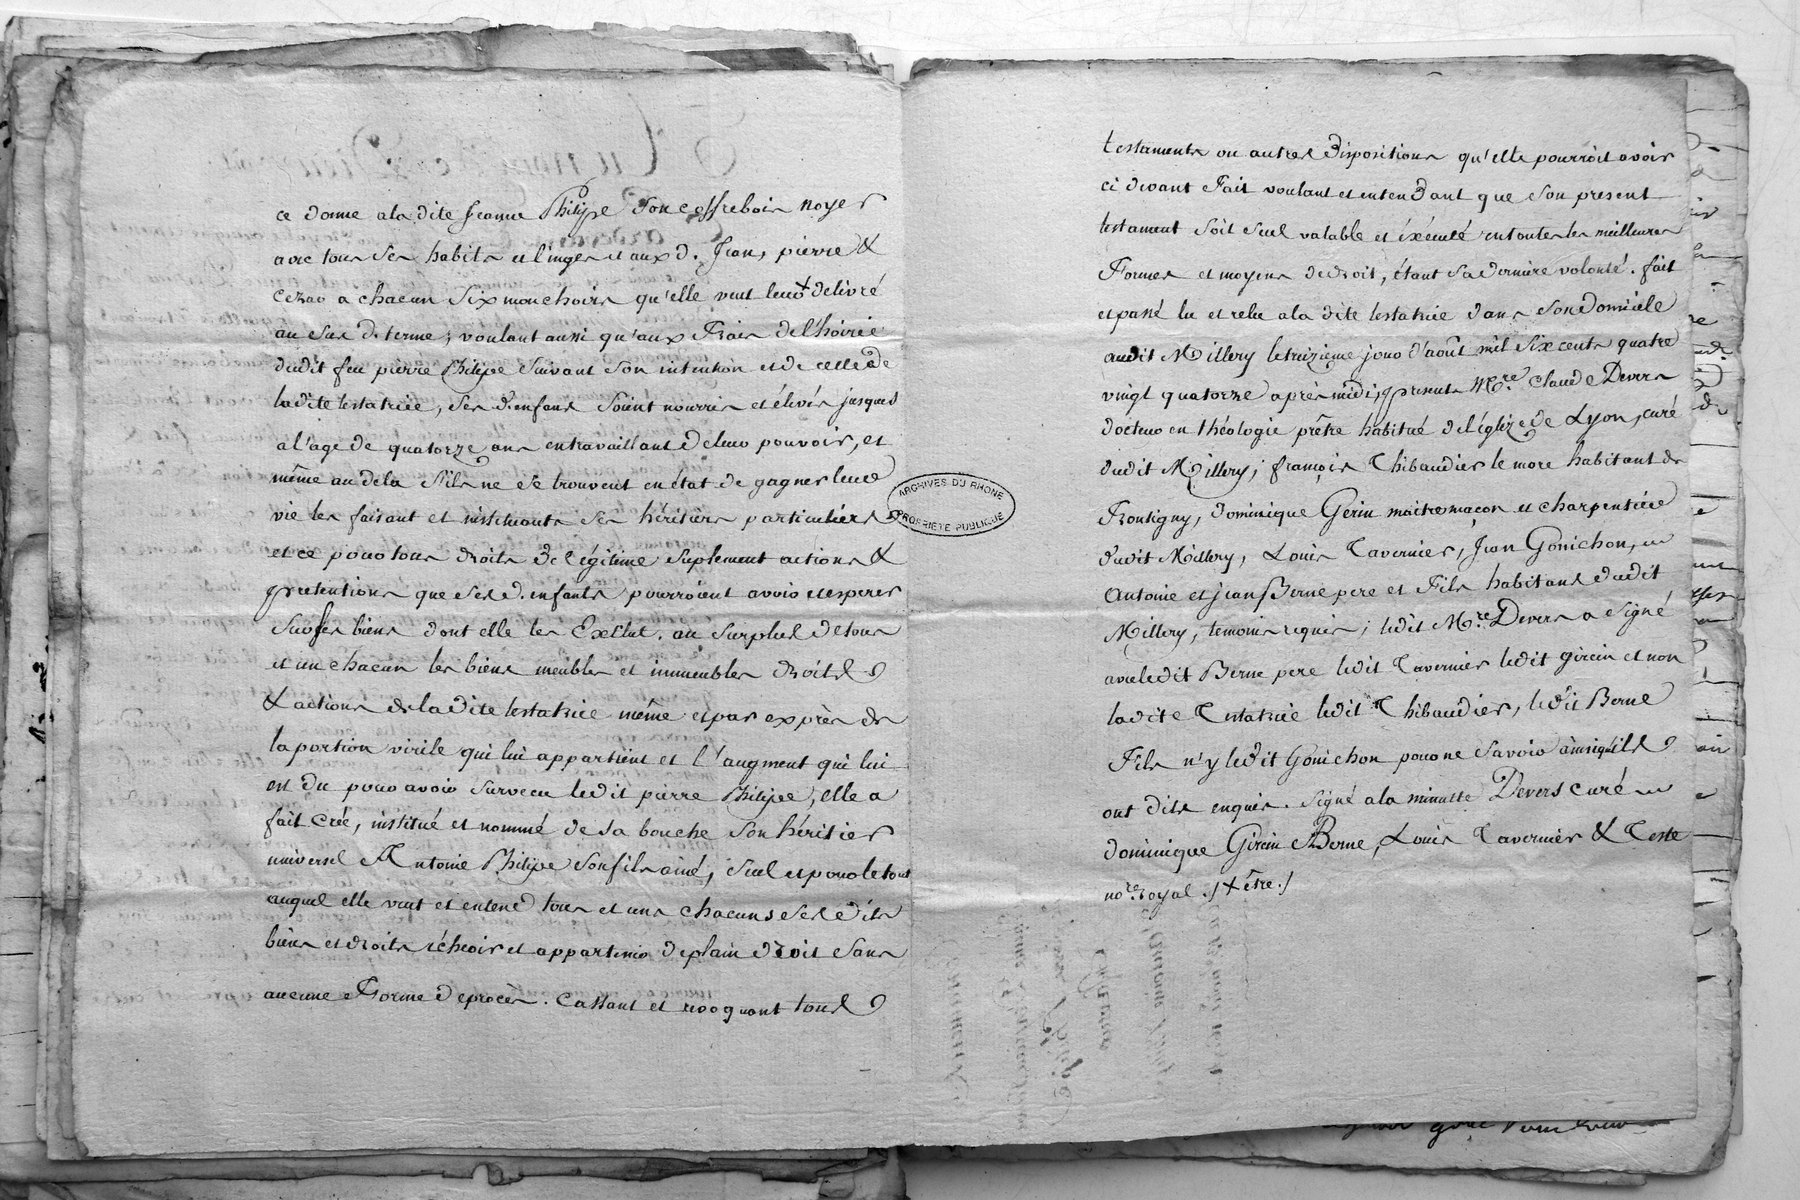 ce donne a la dite Jeanne Philipe son coffre bois noyer
avec tous ses habits et linges et aux d. Jean, pierre &
a chacun six mouchoirs qu'elle veut leur + delivré
au sus d. terme; voulant aussi qu'aux Frais de l'hoirie
dudit feu pierre Philipe suivant son intention et de celle de
la dite testatrice, ses d. enfans soient nourris et élevés jusques
a l'age de quatorze ans en travaillant de leur pouvoir, et
même au dela s'ils ne se trouvent en état de gagner leur
vie les faisant et instituants ses héritiers particuliers
et ce pour tous droits de légitime suplement actions &
pretentions que ses d. enfants pourroient avoir et esperer
sur ses biens dont elle les Exclut. au surplus de tous
et un chacun les biens meubles et immeubles droits
& actions de la dite testatrice même et par exprès de
la portion virile qui lui appartient et l'augment qui lui
est du pour avoir survecu ledit pierre Philipe, elle a
fait crée, institué et nommé de sa bouche son héritier
universel Antoine Philipe son fils ainé, seul et pour le tout
auquel elle veut et entend tous et uns chacuns ses dits
biens et droits échoir et appartenir de plain droit sans
aucune Forme de procès. Cassant et revoquant tous
testaments ou autres dispositions qu'elle pourroit avoir
ci devant Fait voulant et entendant que son present
testament soit seul valable et éxécuté en toutes les meilleures
Formes et moyens de droit, étant sa dernière volonté. fait
et passé lu et relu a la dite testatrice dans son domicile
audit Millery le treizieme jour d'août mil six cents quatre
vingt quatorze après midi, presents Mre. Claude Devers
docteur en théologie prêtre habitué de l'églize de Lyon, curé
dudit Millery; françois Thibaudier le more habitant de
Frontigny, dominique Gerin maitre maçon et charpentier
dudit Millery, Louis Tavernier, Jean Gonichon,
Antoine et jean Berne pere et Fils habitans dudit
Millery, temoins requis; ledit Mre. Devers a signé
avec ledit Berne pere ledit Tavernier ledit girein et non
la dite Testatrice ledit Thibaudier, ledit Berne
Fils n'y ledit Gonichon pour ne savoir ainsi qu'ils
ont dits enquis. Signé a la minutte Devers curé
dominique Girein Berne, Louis Tavernier & Teste
nore. royal ./ + être ./
ARCHIVES DU RHONE
PROPRIETE PUBLIQUE